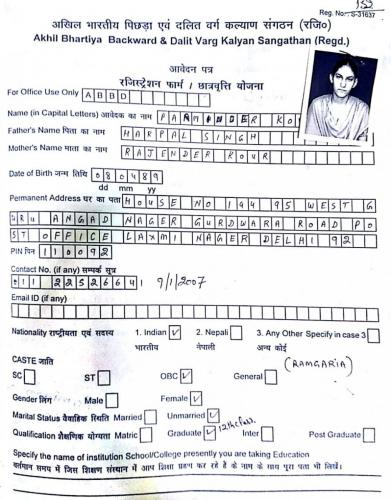 152
Reg. No.:-S-31637
अखिल भारतीय पिछड़ा एवं दलित वर्ग कल्याण संगठन (रजि०)
Akhil Bhartiya Backward & Dalit Varg Kalyan Sangathan (Regd.)
आवेदन पत्र
रजिस्ट्रेशन फार्म / छात्रवृत्ति योजना
For Office Use Only A B B D
Name (in Capital Letters) आवेदक का नाम PARMINDER KO
Father's Name पिता का नाम HARPAL SINGH
Mother's Name माता का नाम RAJENDER KOUR
Date of Birth जन्म तिथि 080489
dd mm yy
Permanent Address घर का पता HOUSE NO 144 95 WEST G
URU ANGAD NAGER GURDWARA ROAD PO
ST OFFICE LAXMI NAGER DELHI 92
PIN पिन 110092
Contact No. (if any) सम्पर्क सूत्र
011 22526641 9/1/2007
Email ID (if any)
Nationality राष्ट्रीयता एवं सदस्य 1. Indian ✓ 2. Nepali 3. Any Other Specify in case 3
भारतीय नेपाली अन्य कोई
(RAMGARIA)
CASTE जाति
SC ST OBC ✓ General
Gender लिंग Male Female ✓
Marital Status वैवाहिक स्थिति Married Unmarried ✓
Qualification शैक्षणिक योग्यता Matric Graduate ✓ 12th Class Inter Post Graduate
Specify the name of institution School/College presently you are taking Education
वर्तमान समय में जिस शिक्षण संस्थान में आप शिक्षा ग्रहण कर रहे है के नाम के साथ पूरा पता भी लिखें।